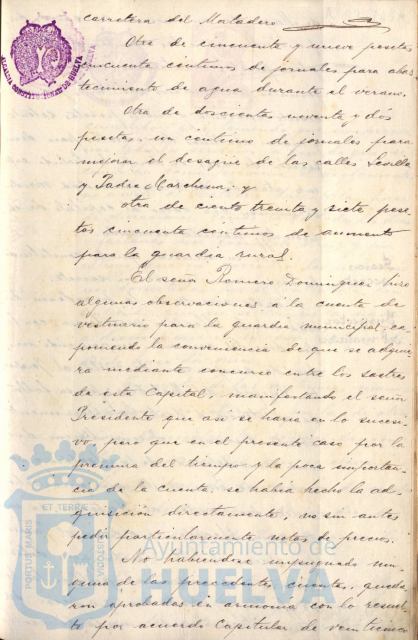 carretera del Matadero
Otra de cincuenta y nueve pesetas
cincuenta céntimos de jornales para abas
tecimiento de agua durante el verano.
Otra de doscientas noventa y dos
pesetas, un céntimo de jornales para
mejorar el desagüe de las calles Sevilla
y Padre Marchena; y
otra de ciento treinta y siete pese
tas cincuenta céntimos de aumento
para la guardia rural.
El señor Romero Dominguez hizo
algunas observaciones á la cuenta de
vestuario para la guardia municipal, ex
poniendo la conveniencia de que se adqui
era mediante concurso entre los sastres
de esta Capital, manifestando el señor
Presidente que así se haria en lo sucesi
vo, pero que en el presente caso por la
premura del tiempo y la poca importan
cia de la cuenta, se habia hecho la ad
quisición directamente, no sin antes
pedir particularmente notas de precios.
No habiendose impugnado nin
guna de las precedentes cuentas, queda
ron aprobadas en armonia con lo resuel
to por acuerdo Capitular de veinticinco
ET TERRÆ
PORTUS MARIS
CUSTODIA
Ayuntamiento de
HUELVA